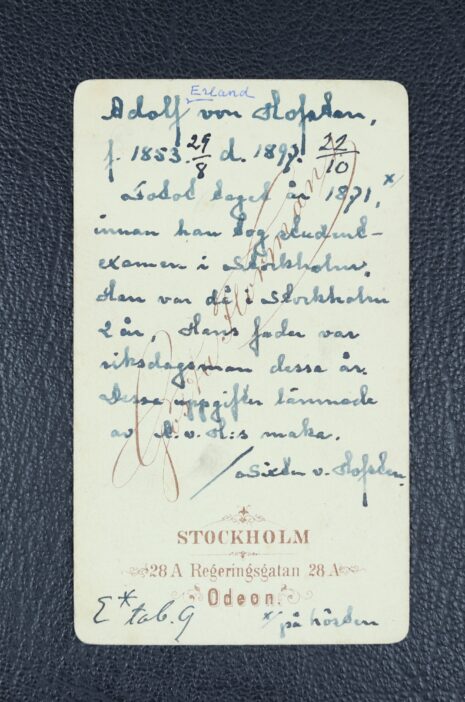 Erland
Adolf von Hofsten,
f. 1853 29/8 d. 1897. 22/10
Fotot taget år 1871,x
innan han tog student-
examen i Stockholm.
Han var då i Stockholm
2 år. Hans fader var
riksdagsman dessa år.
Dessa uppgifter lämnade
av A.v.H:s maka.
/Sixten v. Hofsten.
Gösta Florman
STOCKHOLM
28 A Regeringsgatan 28 A
Odeon.
E* tab. 9
x/ på hösten